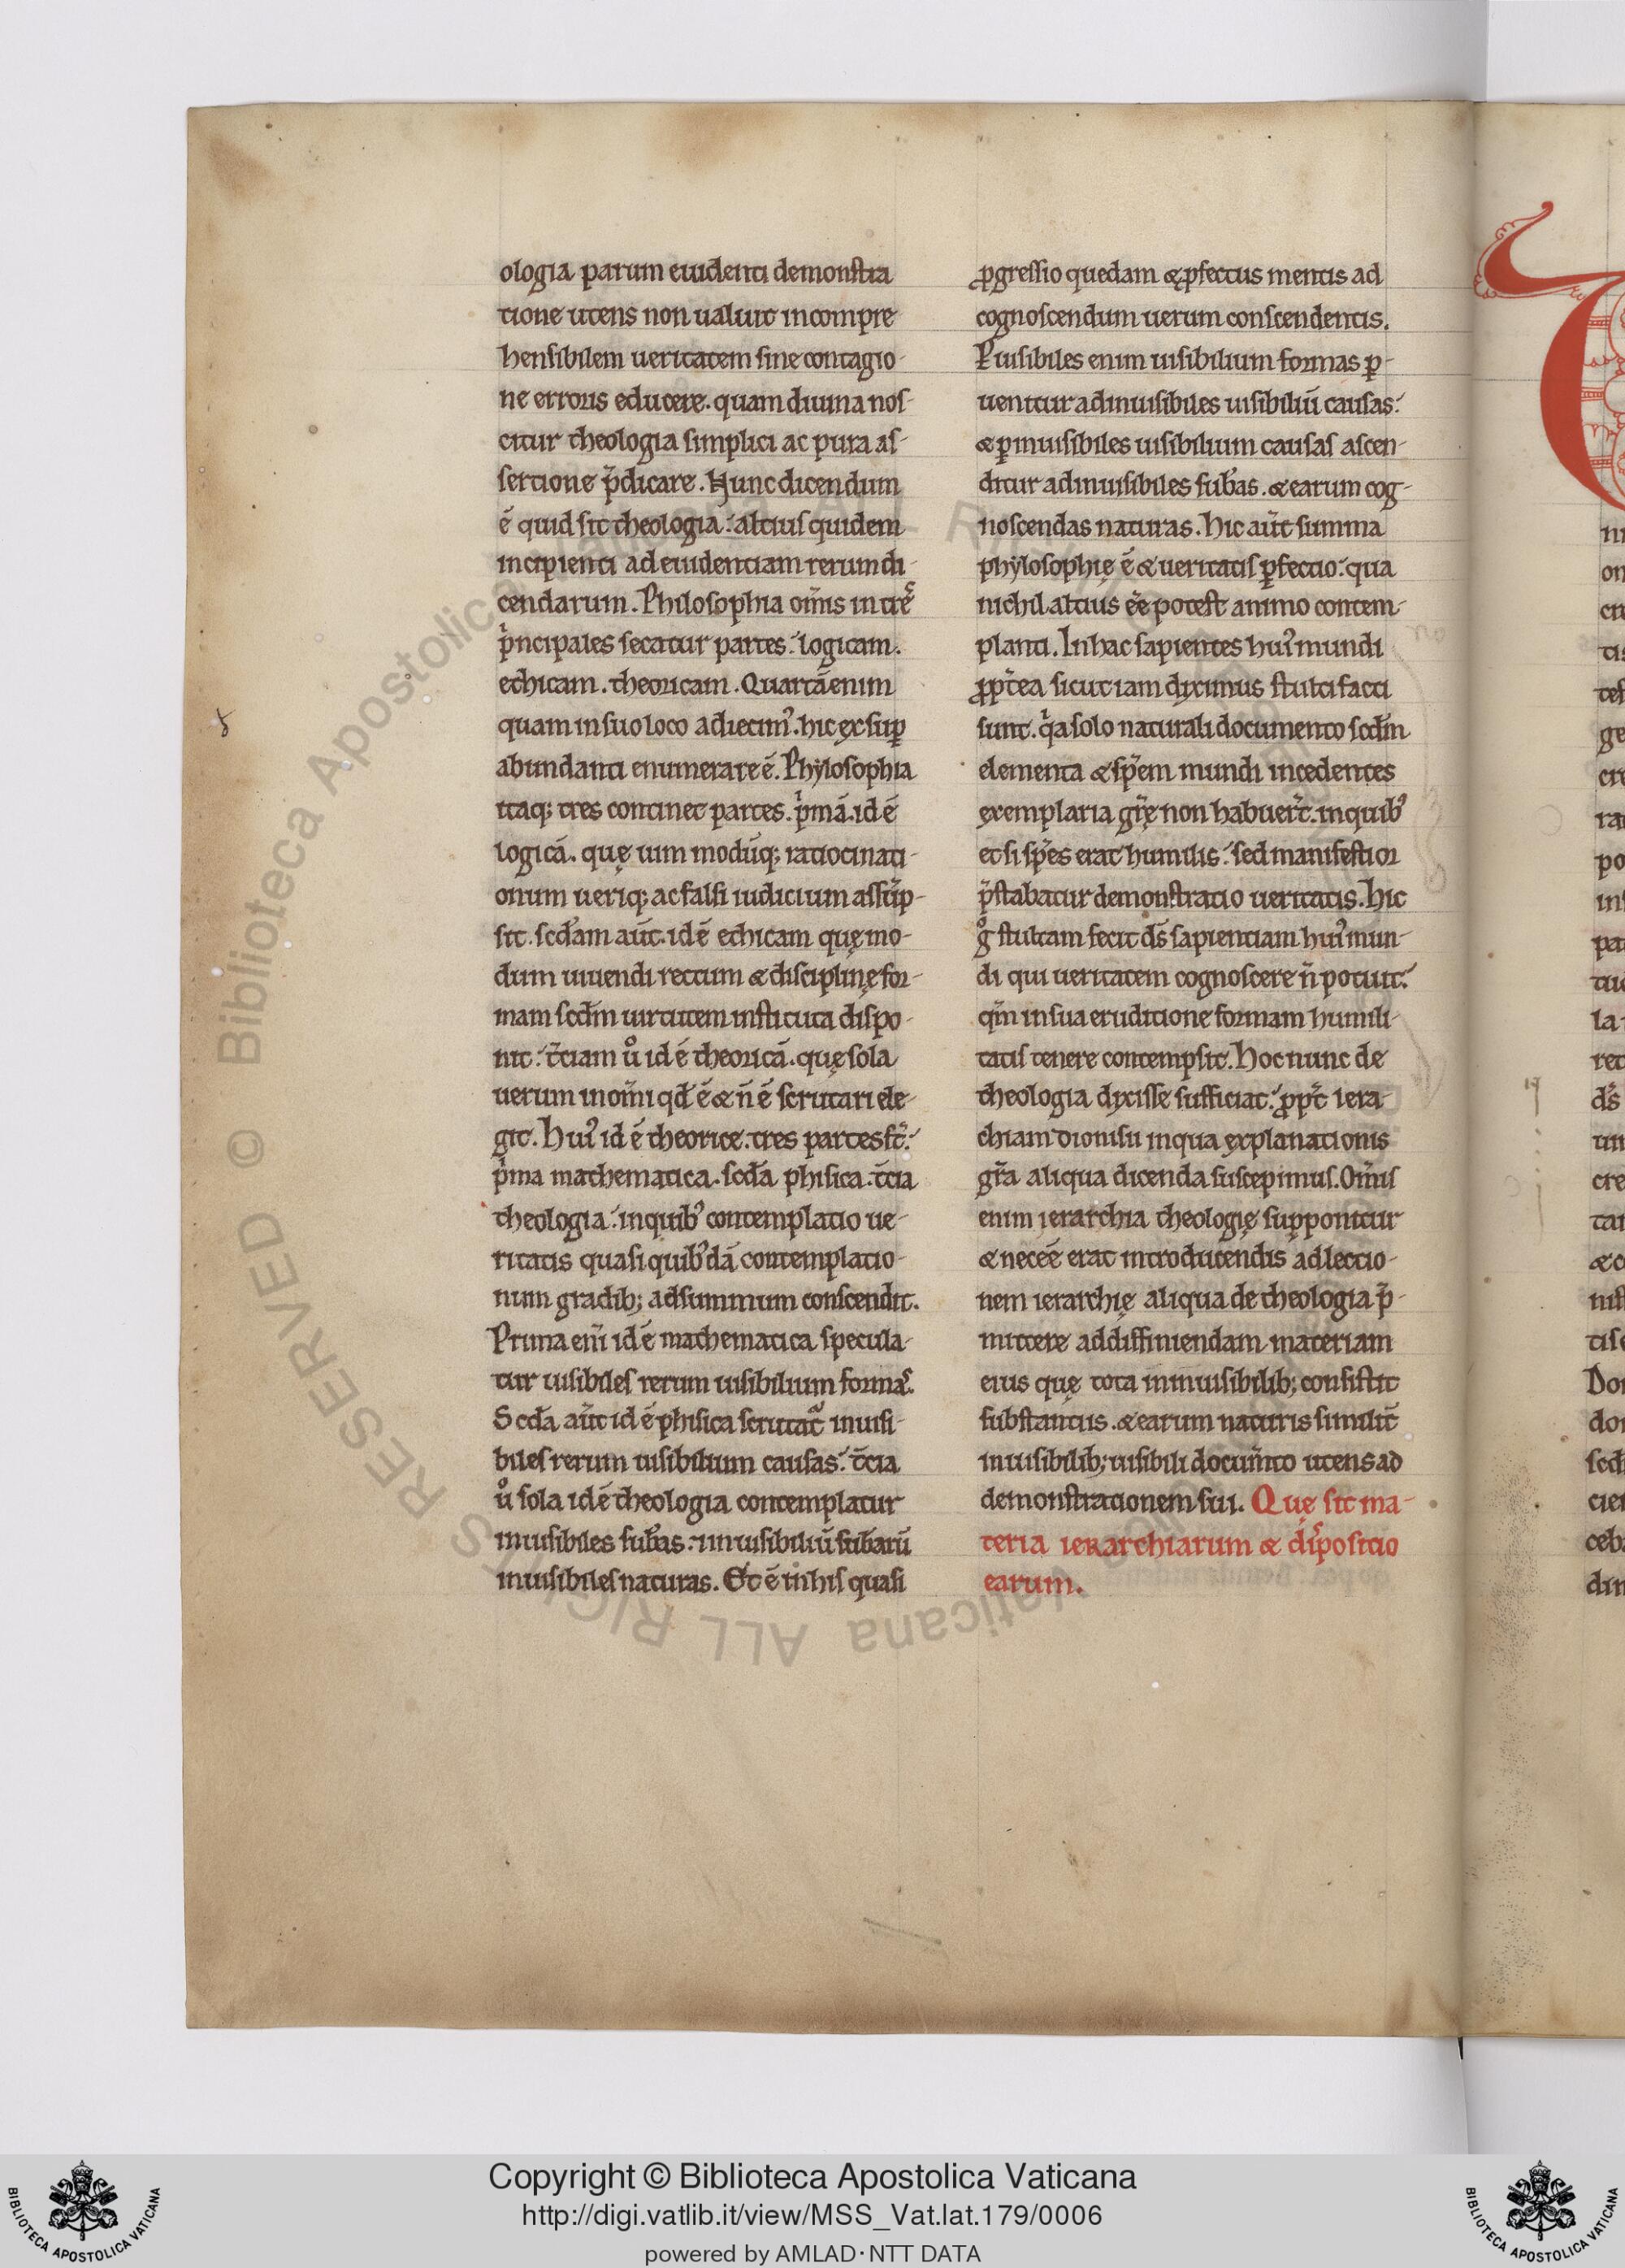 ologia parum euidenti demonstra
tione utens non ualuit incompre
hensibilem ueritatem sine contagio-
ne erroris educere. quam diuina nos-
citur theologia simplici ac pura as-
sertione p̄dicare. Hunc dicendum
ē quid sit theologia: altius quidem
incipienti ad euidentiam rerum di-
cendarum. Philosophia om̄is in tre͛
p̍ncipales secatur partes: logicam.
ethicam. theoricam. Quartā enim
quam in suo loco adiecim᾽. hic ex sup̲
abundanti enumerare ē. Phylosophia
itaq; tres continet partes. p̍mā. id ē
logicā. quę uim modūq; ratiocinati-
onum ueriq; ac falsi iudicium assūp-
sit. scd̄am aūt. id ē ethicam quę mo-
dum uiuendi rectum & disciplinę for-
mam scd̄m uirtutem instituta dispo-
nit: t̄ciam ůo id ē theoricā. quę sola
uerum in om̄i qd̄ ē & n̄ ē scrutari ele-
git. Hui᾽ id ē theorice. tres partes st̄:
p̍ma mathematica. scd̄a phisica. t̄cia
theologia: in quib᾽ contemplatio ue-
ritatis quasi quib᾽dā contemplatio-
num gradib; ad summum conscendit.
Prima eni̅ id ē mathematica specula-
tur uisibiles rerum uisibilium formas.
Scd̄a aūt id ē phisica scrutat᷑ inuisi-
biles rerum uisibilium causas: t̄cia
ůo sola id ē theologia contemplatur
inuisibiles sub̄as. & inuisibiliū sub̄arū
inuisibiles naturas. Et ē in his quasi
ꝓgressio quedam & ꝓfectus mentis ad
cognoscendum uerum conscendentis.
P uisibiles enim uisibilium formas ꝑ-
uenitur ad inuisibiles uisibiliū causas:
& ꝑ inuisibiles uisibilium causas ascen-
ditur ad inuisibiles sub̄as. & earum cog-
noscendas naturas. Hic aūt summa
phylosophię ē & ueritatis ꝑfectio: qua
nichil altius eē̄ potest animo contem-
planti. In hac sapientes hui᾽ mundi
ꝓpt̄ea sicut iam diximus stulti facti
sunt. q̍a solo naturali documento scd̄m
elementa & sp̄em mundi incedentes
exemplaria gr̄ę non habuer̄t. in quib᾽
etsi sp̄es erat humilis: sed manifestior
p̄stabatur demonstratio ueritatis. Hic
gͦ stultam fecit d̄s sapientiam hui᾽ mun-
di qui ueritatem cognoscere n̄ potuit:
qm̄ in sua eruditione formam humili-
tatis tenere contempsit. Hoc nunc de
theologia dixisse sufficiat: ꝓpt̄ iera-
chiam dionisii in qua explanationis
gr̄a aliqua dicenda suscepimus. Om̄is
enim ierarchia theologię supponitur
& necēē erat introducendis ad lectio-
nem ierarchię aliqua de theologia p̄-
mittere ad diffiniendam materiam
eius quę tota in inuisibilib; consistit
substantiis. & earum naturis similit̄
inuisibilib; uisibili docum̄to utens ad
demonstrationem sui. Quę sit ma-
teria ierarchiarum & dispositio
earum.
Copyright © Biblioteca Apostolica Vaticana
http://digi.vatlib.it/view/MSS_Vat.lat.179/0006
powered by AMLAD·NTT DATA
BIBLIOTECA APOSTOLICA VATICANA
BIBLIOTECA APOSTOLICA VATICANA
© Biblioteca Apostolica Vaticana ALL RIGHTS RESERVED